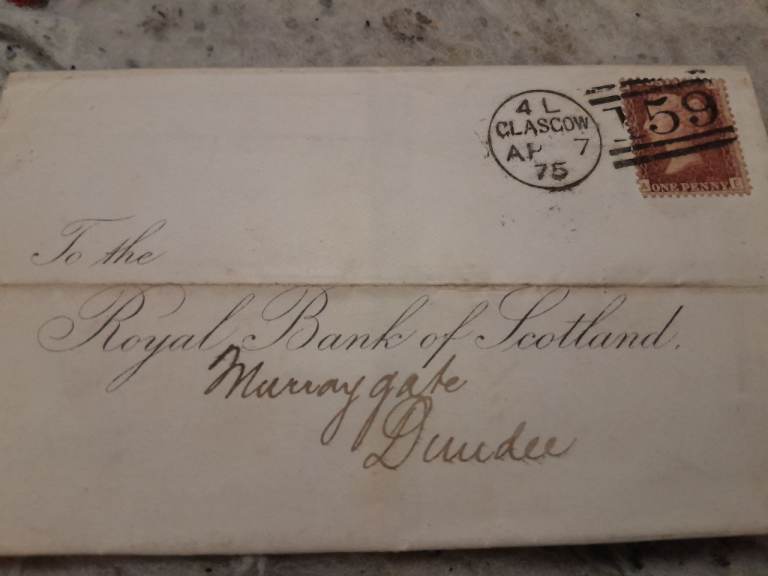 4 L
GLASGOW
AP 7
75
159
ONE PENNY
To the
Royal Bank of Scotland.
Murraygate
Dundee